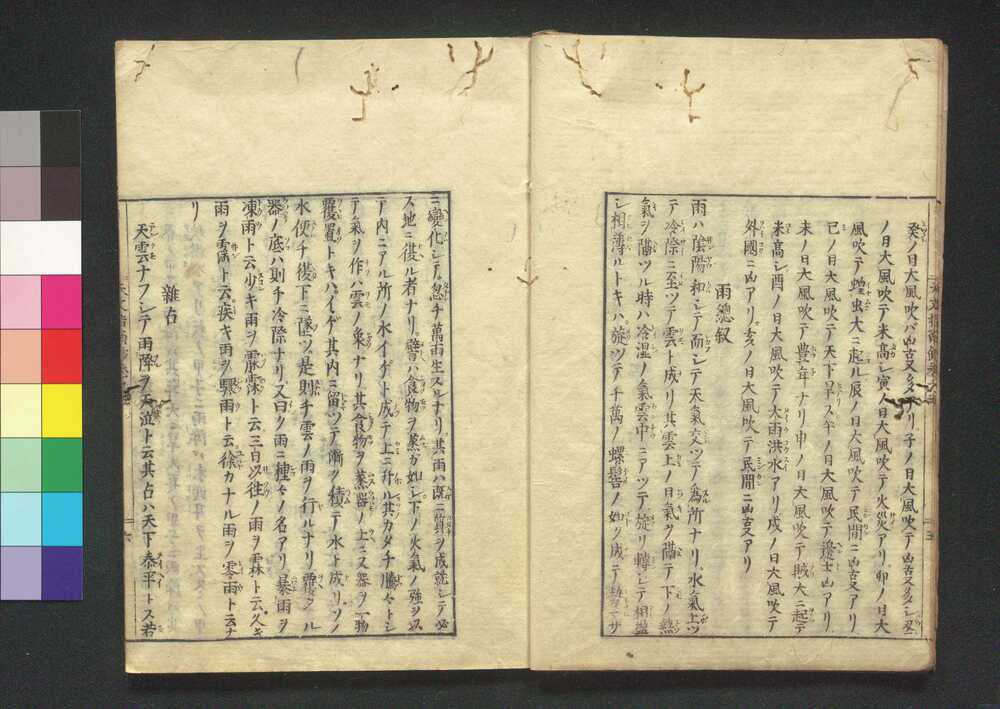 癸ノ日大風吹バ凶吉又多アリ子ノ日大風吹テ凶吉又多シ丑
ノ日大風吹テ米高シ寅ノ日大風吹テ火災アリ卯ノ日大
風吹テ蝗虫大ニ起ル辰ノ日大風吹テ民間ニ凶吉又アリ
巳ノ日大風吹テ天下旱ス午ノ日大風吹テ邊土凶アリ
未ノ日大風吹テ豊年ナリ申ノ日大風吹テ賊大ニ起テ
米高シ酉ノ日大風吹テ大雨洪水アリ戌ノ日大風吹テ
外國ニ凶アリ亥ノ日大風吹テ民間ニ凶吉又アリ
雨總叙
雨ハ陰陽和シテ而シテ天氣交ツテ為所ナリ水氣上ツ
テ冷際ニ至ツテ雲ト成リ其雲上ノ日氣ヲ隔テ下ノ熱
氣ヲ隔ツル時ハ冷湿ノ氣雲中ニアツテ旋リ轉シテ相盪
シ相薄ルトキハ旋ツテ千萬ノ螺髻ノ如ヲ成テ
ニ變化シテ忽チ萬雨生スルナリ其雨ハ既ニ質ヲ成就シテ必
ス地ニ復ル者ナリ譬ハ食物ヲ蒸カ如シ下ノ火氣ノ強キ以
テ内ニアル所ノ水イゲト成テ上ニ升ル其カタチ騰々トシ
テ氣ヲ作ハ雲ノ象ナリ其食物ヲ蒸器ノ上ニ又器ヲ一物
覆置トキハイゲ其内ニ留ツテ漸ク積テ水ト成リソノ
水便チ復下ニ墜ツ是則チ雲ノ雨ヲ行ルナリ覆タル
器ノ底ハ則チ冷際ナリ又曰ク雨ニ種々ノ名アリ暴雨ヲ
凍雨ト云少キ雨ヲ霢霂ト云三日以往ノ雨ヲ霖ト云久キ
雨ヲ霪ト云疾キ雨ヲ驟雨ト云徐カナル雨ヲ零雨ト云ナ
リ
雜占
天雲ナフシテ雨降ヲ天泣ト云其占ハ天下泰平トス若